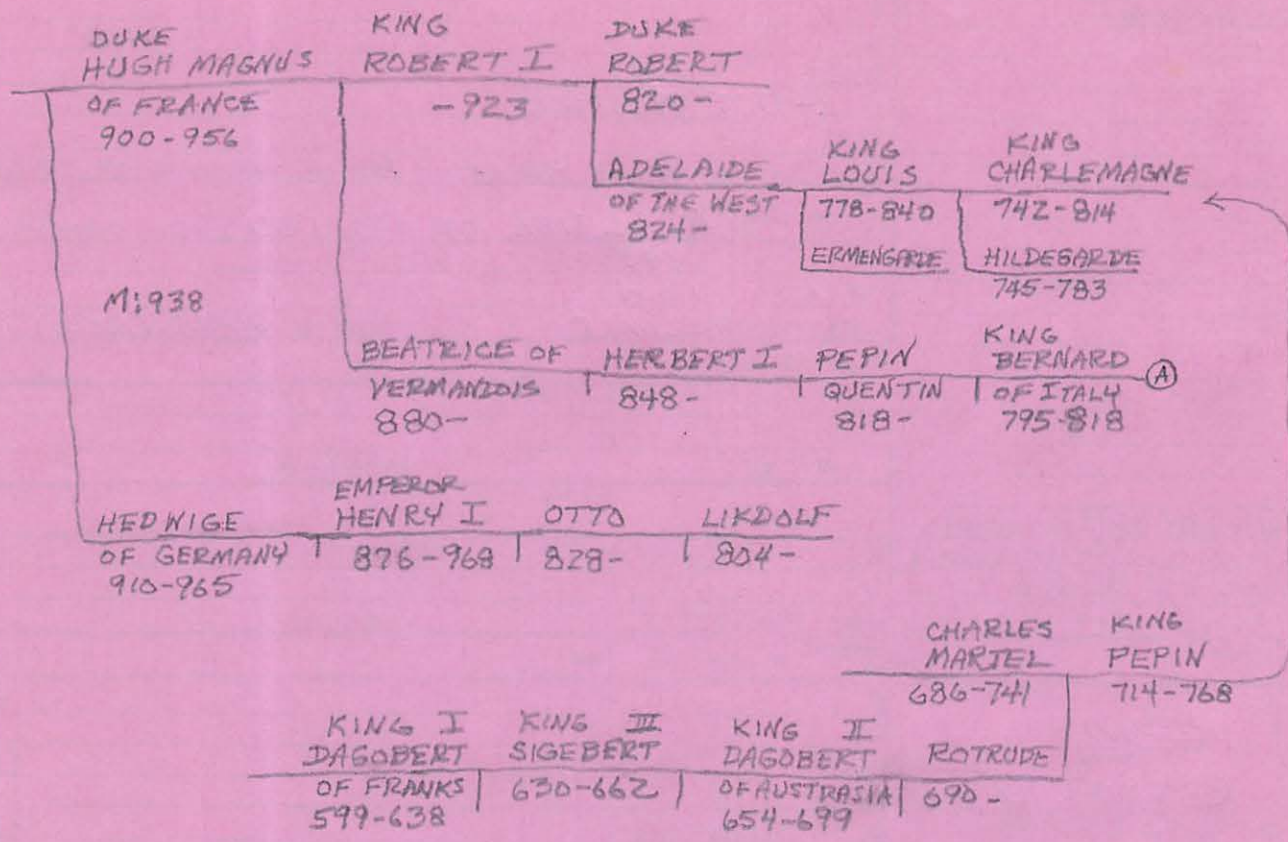 DUKE
HUGH MAGNUS
OF FRANCE
900-956
KING
ROBERT I
-923
DUKE
ROBERT
820-
ADELAIDE
OF THE WEST
824-
KING
LOUIS
778-840
ERMENGARDE
KING
CHARLEMAGNE
742-814
HILDEGARDE
745-783
M:938
BEATRICE OF
VERMANDOIS
880-
HERBERT I
848-
PEPIN
QUENTIN
818-
KING
BERNARD
OF ITALY
795-818
A
HEDWIGE
OF GERMANY
910-965
EMPEROR
HENRY I
876-968
OTTO
828-
LIKDOLF
804-
CHARLES
MARTEL
686-741
KING
PEPIN
714-768
KING I
DAGOBERT
OF FRANKS
599-638
KING III
SIGEBERT
630-662
KING II
DAGOBERT
OF AUSTRASIA
654-699
ROTRUDE
690-